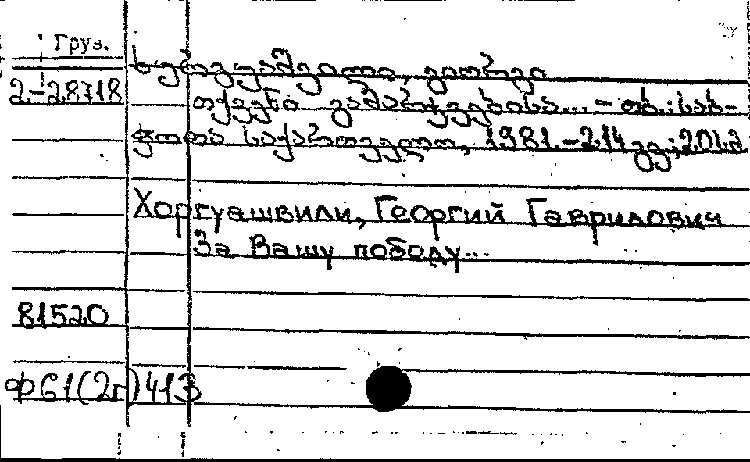 Груз.
ხურგუაშვილი, გიორგი
2.-28718
თქვენი გამარჯვებისა... - თბ.: საბ-
ჭოთა საქართველო, 1981.-214 გვ.; 20სმ
Хоргуашвили, Георгий Гаврилович
За Вашу победу...
81520
Ф61(2г)413